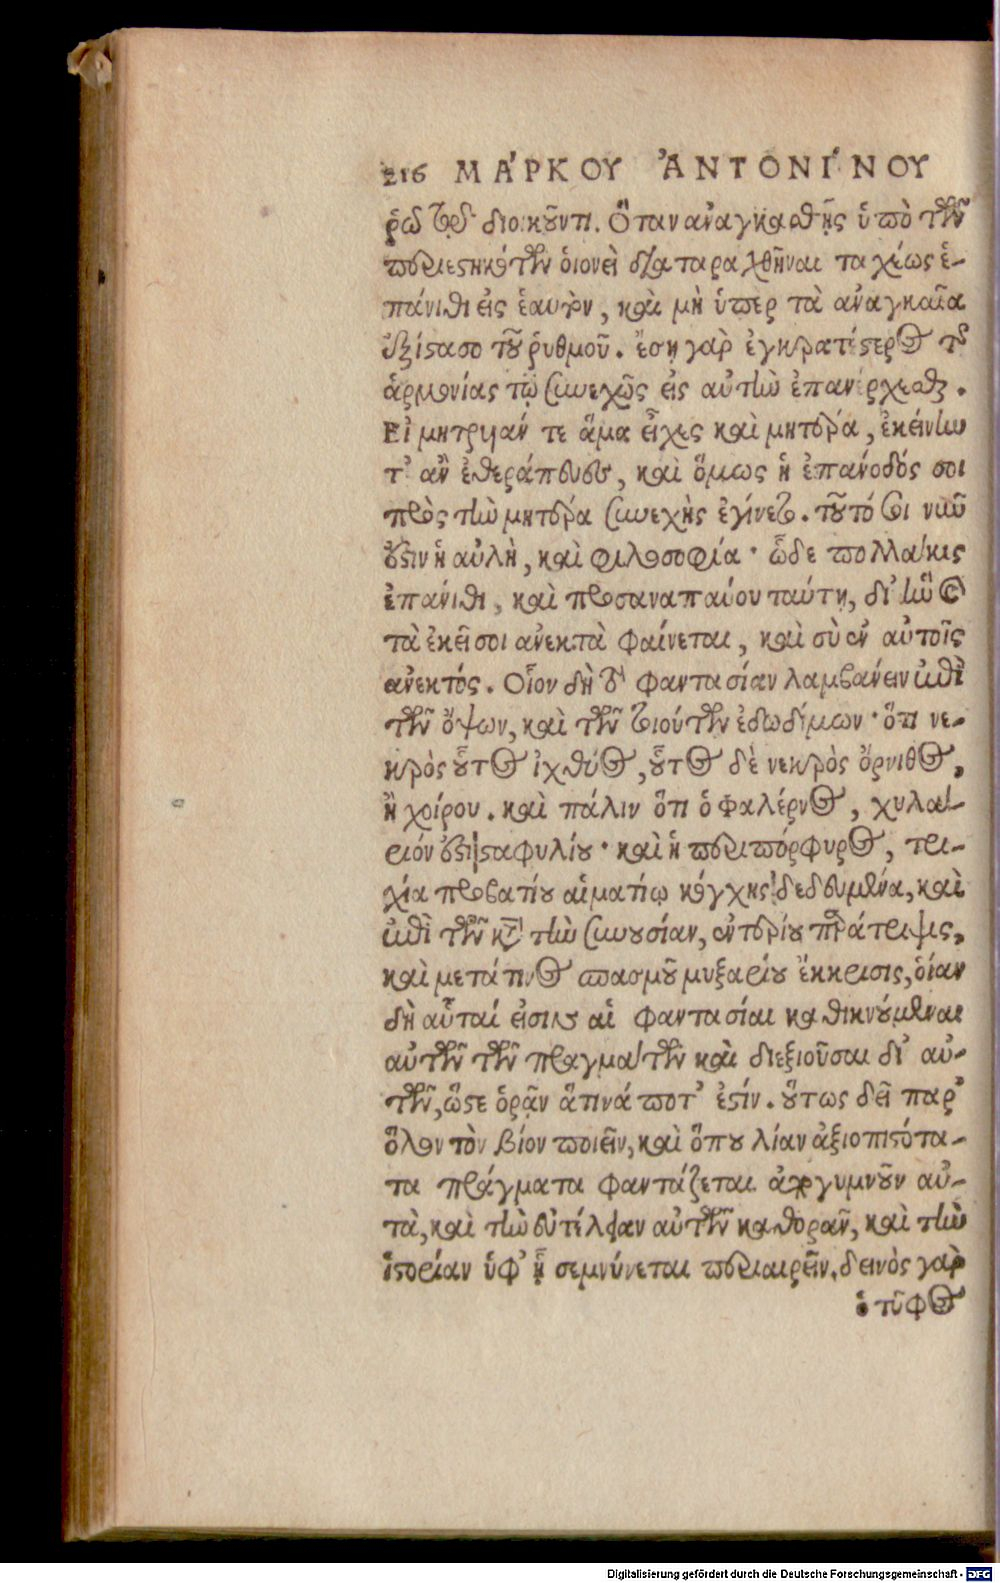 216 ΜΑ´ΡΚΟΥ ἈΝΤΟΝΙ´ΝΟΥ
ῥῶ τῷ διοικοῦντι. Ὅταν ἀναγκασθῇς ὑπὸ τῶν
περιεστηκότων οἱονεὶ διαταραχθῆναι ταχέως ἐ-
πάνιθι εἰς ἑαυτὸν, καὶ μὴ ὑπερ τὰ ἀναγκαῖα
ἐξίστασο τοῦ ῥυθμοῦ. ἔσῃ γὰρ ἐγκρατέστερος τῆς
ἁρμονίας τῷ συνεχῶς εἰς αὐτὴν ἐπανέρχεσθαι.
Εἰ μητρυιάν τε ἅμα εἶχες καὶ μητέρα, ἐκείνην
τ' ἂν ἐθεράπευες, καὶ ὅμως ἡ ἐπάνοδός σοι
πρὸς τὴν μητέρα συνεχὴς ἐγίνετο. τοῦτό σοι νῦν
ἐστιν ἡ αὐλὴ, καὶ φιλοσοφία· ὧδε πολλάκις
ἐπάνιθι, καὶ προσαναπαύου ταύτῃ, δι' ἣν καὶ
τὰ ἐκεῖ σοι ἀνεκτὰ φαίνεται, καὶ σὺ ἐν αὐτοῖς
ἀνεκτός. Οἷον δὴ τὸ φαντασίαν λαμβάνειν ἐπὶ
τῶν ὄψων, καὶ τῶν τοιούτων ἐδωδίμων· ὅτι νε-
κρὸς οὗτος ἰχθύος, οὗτος δὲ νεκρὸς ὄρνιθος,
ἢ χοίρου. καὶ πάλιν ὅτι ὁ Φαλέρνος, χυλά-
ριόν ἐστι σταφυλίου· καὶ ἡ περιπόρφυρος, τρι-
χία προβατίου αἱματίῳ κόγχης δεδευμένα, καὶ
ἐπὶ τῶν κατὰ τὴν συνουσίαν, ἐντερίου παράτριψις,
καὶ μετά τινος σπασμοῦ μυξαρίου ἔκκρισις, οἷαν
δὴ αὗταί εἰσιν αἱ φαντασίαι καθικνούμεναι
αὐτῶν τῶν πραγμάτων καὶ διεξιοῦσαι δι' αὐ-
τῶν, ὥστε ὁρᾷν ἅτινά ποτ' ἐστίν. οὕτως δεῖ παρ'
ὅλον τὸν βίον ποιεῖν, καὶ ὅπου λίαν ἀξιοπιστότα-
τα πράγματα φαντάζεται ἀπογυμνοῦν αὐ-
τὰ, καὶ τὴν εὐτέλειαν αὐτῶν καθορᾶν, καὶ τὴν
ἱστορίαν ὑφ' ᾗ σεμνύνεται περιαιρεῖν. δεινὸς γὰρ
ὁ τῦφος
Digitalisierung gefördert durch die Deutsche Forschungsgemeinschaft - DFG